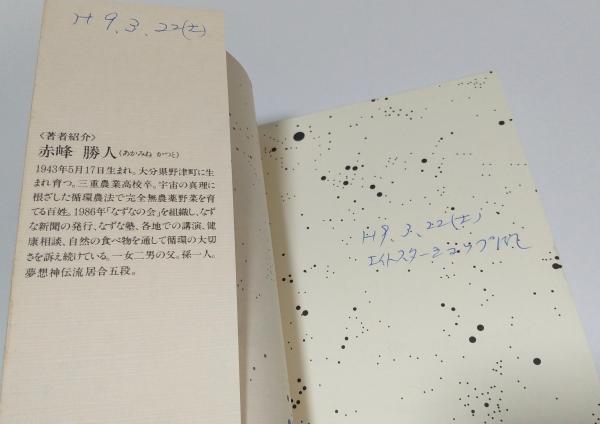 H 9.3.22(土)
〈著者紹介〉
赤峰 勝人(あかみね かつと)
1943年5月17日生まれ。大分県野津町に生
まれ育つ。三重農業高校卒。宇宙の真理に
根ざした循環農法で完全無農薬野菜を育
てる百姓。1986年「なずなの会」を組織し、なず
な新聞の発行、なずな塾、各地での講演、健
康相談、自然の食べ物を通して循環の大切
さを訴え続けている。一女二男の父。孫一人。
夢想神伝流居合五段。
H 9.3.22(土)
エイトスターショップ